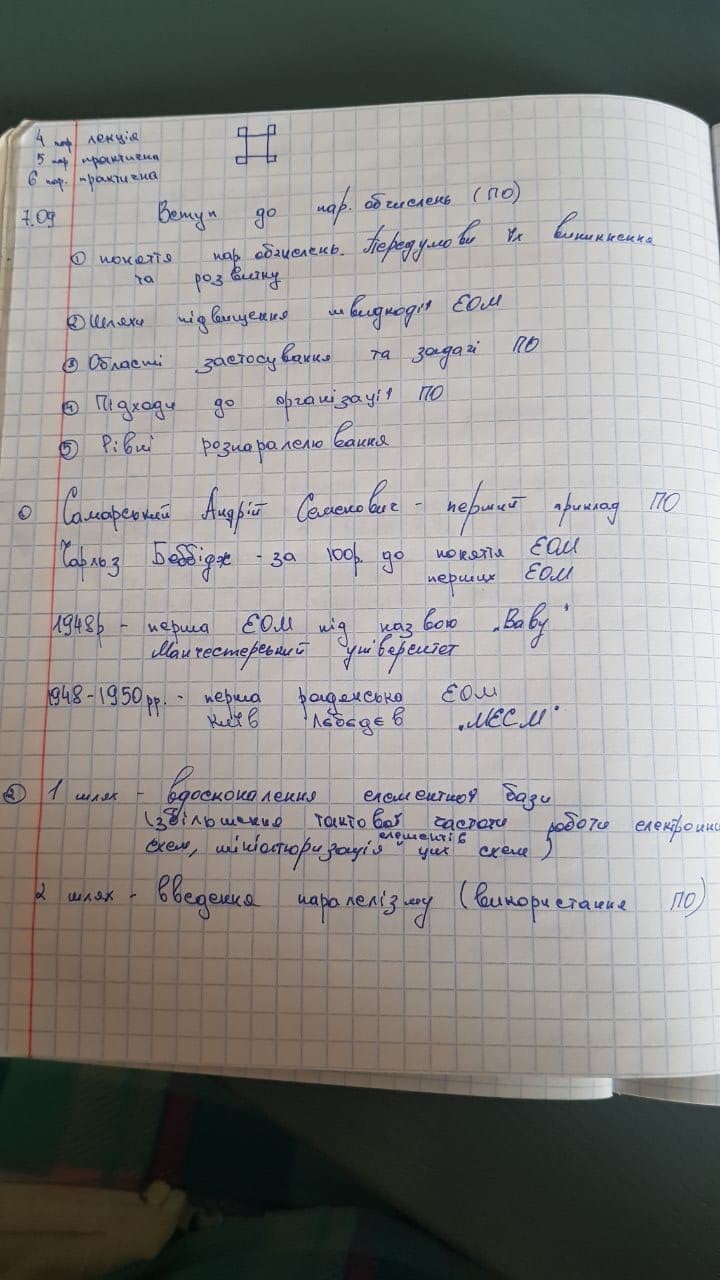 4 пар лекція
5 пар практична
6 пар. практична
7.09 Вступ до пар. обчислень (ПО)
① поняття пар обчислень. Передумови їх виникнення
та розвитку
② Шляхи підвищення швидкодії ЕОМ
③ Області застосування та задачі ПО
④ Підходи до організації ПО
⑤ Рівні розпаралелювання
① Самарський Андрій Семенович - перший приклад ПО
Чарльз Беббідж - за 100р. до поняття ЕОМ
перших ЕОМ
1948р - перша ЕОМ під назвою „Baby"
Манчестерський університет
1948-1950рр. - перша радянська ЕОМ
Київ Лєбєдєв „МЕСМ"
② 1 шлях - вдосконалення елементної бази
(збільшення тактової частоти роботи електронних
елементів
схем, мініатюризація цих схем)
2 шлях - введення паралелізму (використання ПО)